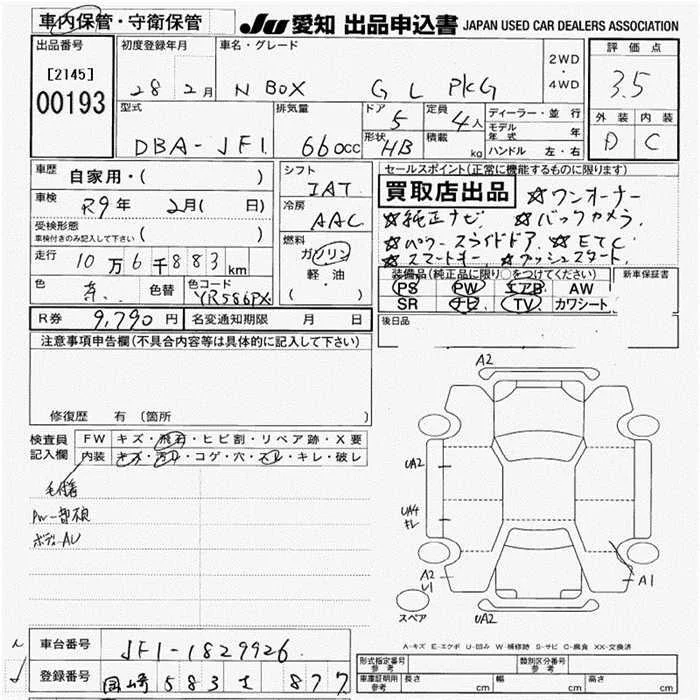 車内保管・守衛保管 JU 愛知 出品申込書 JAPAN USED CAR DEALERS ASSOCIATION
出品番号 初度登録年月 車名・グレード 2WD・4WD 評価点
[2145] 00193 28 2月 N BOX G L PKG 3.5
型式 排気量 ドア 5 定員 4人 ディーラー・並行 外装 内装
DBA-JF1 660cc 形状 HB 積載 kg モデル年式 年 D C
ハンドル 左・右
車歴 自家用・( ) シフト IAT セールスポイント(正常に機能するものに限ります)
車検 R9年 2月( 日) 冷房 AAC 買取店出品 ☆ワンオーナー
受検形態 車検付きのみ記入して下さい ( ) ☆純正ナビ ☆バックカメラ
走行 10万6千883km 燃料 ガソリン 軽油 ( ・ ) ☆パワースライドドア ☆ETC
☆スマートキー ☆プッシュスタート
色 色替 色コード YR586PX 装備品(純正品に限り○をつけてください) 新車保証書
PS PW エアB AW
SR ナビ TV カワシート
R券 9,790円 名変通知期限 月 日 後日品
注意事項申告欄(不具合内容等は具体的に記入して下さい)
修復歴 有 (箇所
A2
検査員記入欄 FW キズ・飛石・ヒビ割・リペア跡・X要
内装 キズ・汚れ・コゲ・穴・スレ・キレ・破レ
UA2
UA4
キレ
ボディAU
A2
U1
A1
スペア
UA2
A-キズ E-エクボ U-凹み W-補修跡 S-サビ C-腐食 XX-交換済
車台番号 JF1-1829926
型式指定番号 参考 類別区分番号 参考
登録番号 岡崎 583 877
車庫証明用 参考 長さ cm 幅 cm 高さ cm